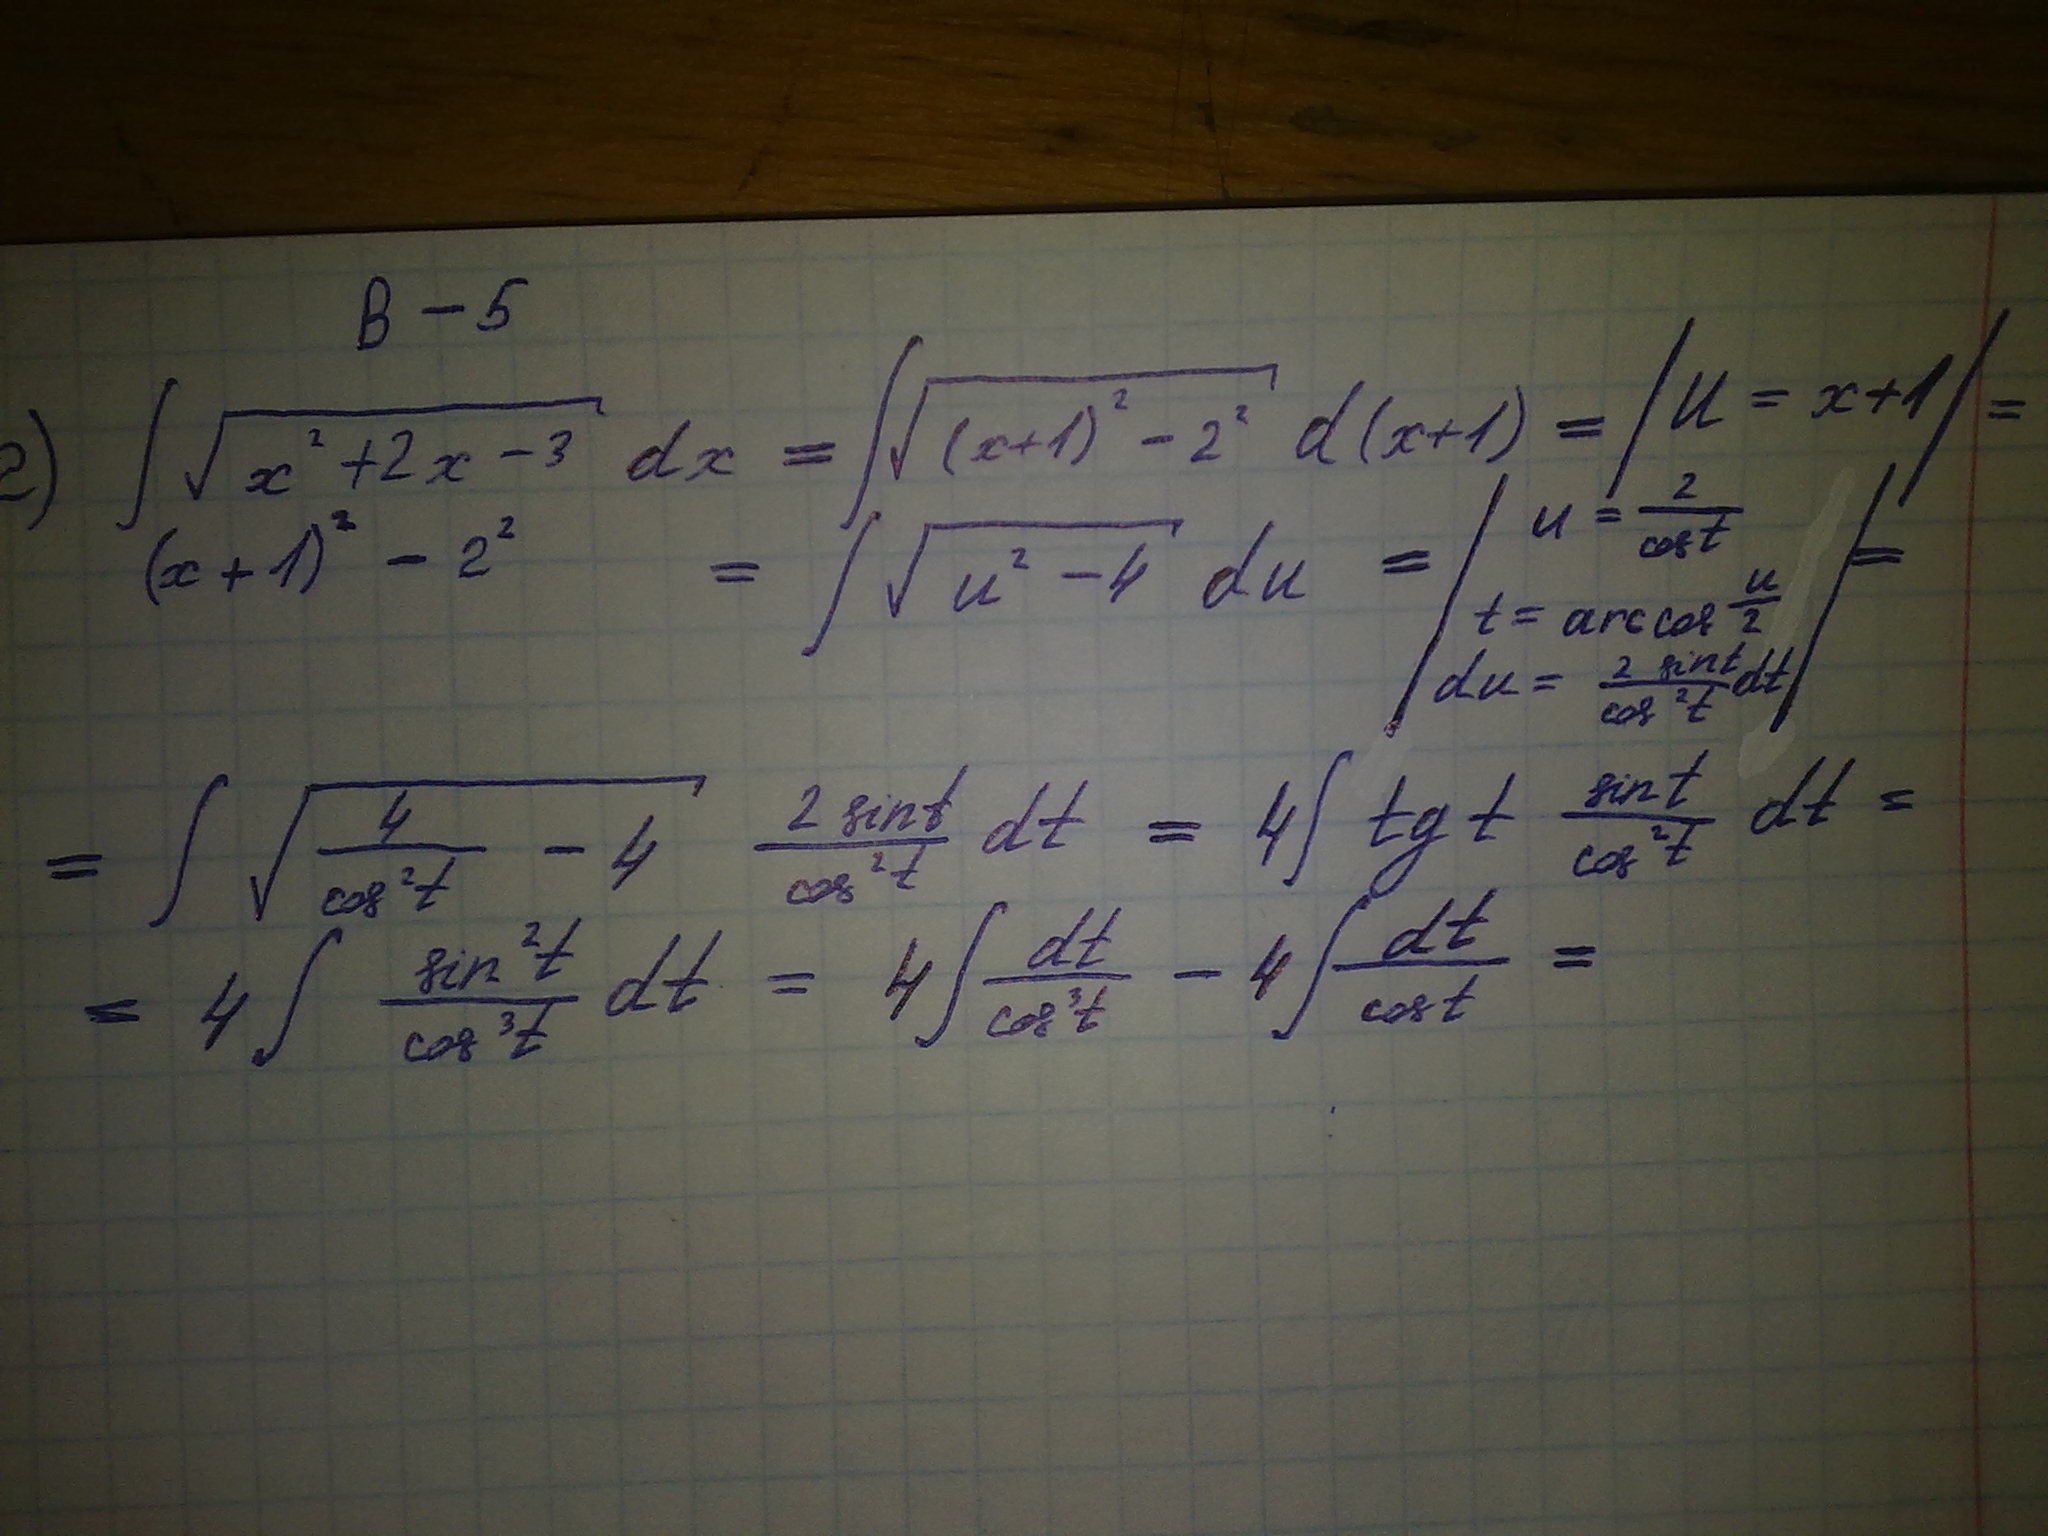 В – 5
2) ∫ √(x² + 2x – 3) dx = ∫ √((x+1)² – 2²) d(x+1) = | u = x+1 | =
(x+1)² – 2² = ∫ √(u² – 4) du = | u = 2/cos t
t = arccos u/2
du = 2 sin t/cos² t dt | =
= ∫ √(4/cos² t – 4) 2 sin t/cos² t dt = 4 ∫ tg t sin t/cos² t dt =
= 4 ∫ sin² t/cos³ t dt = 4 ∫ dt/cos³ t – 4 ∫ dt/cos t =